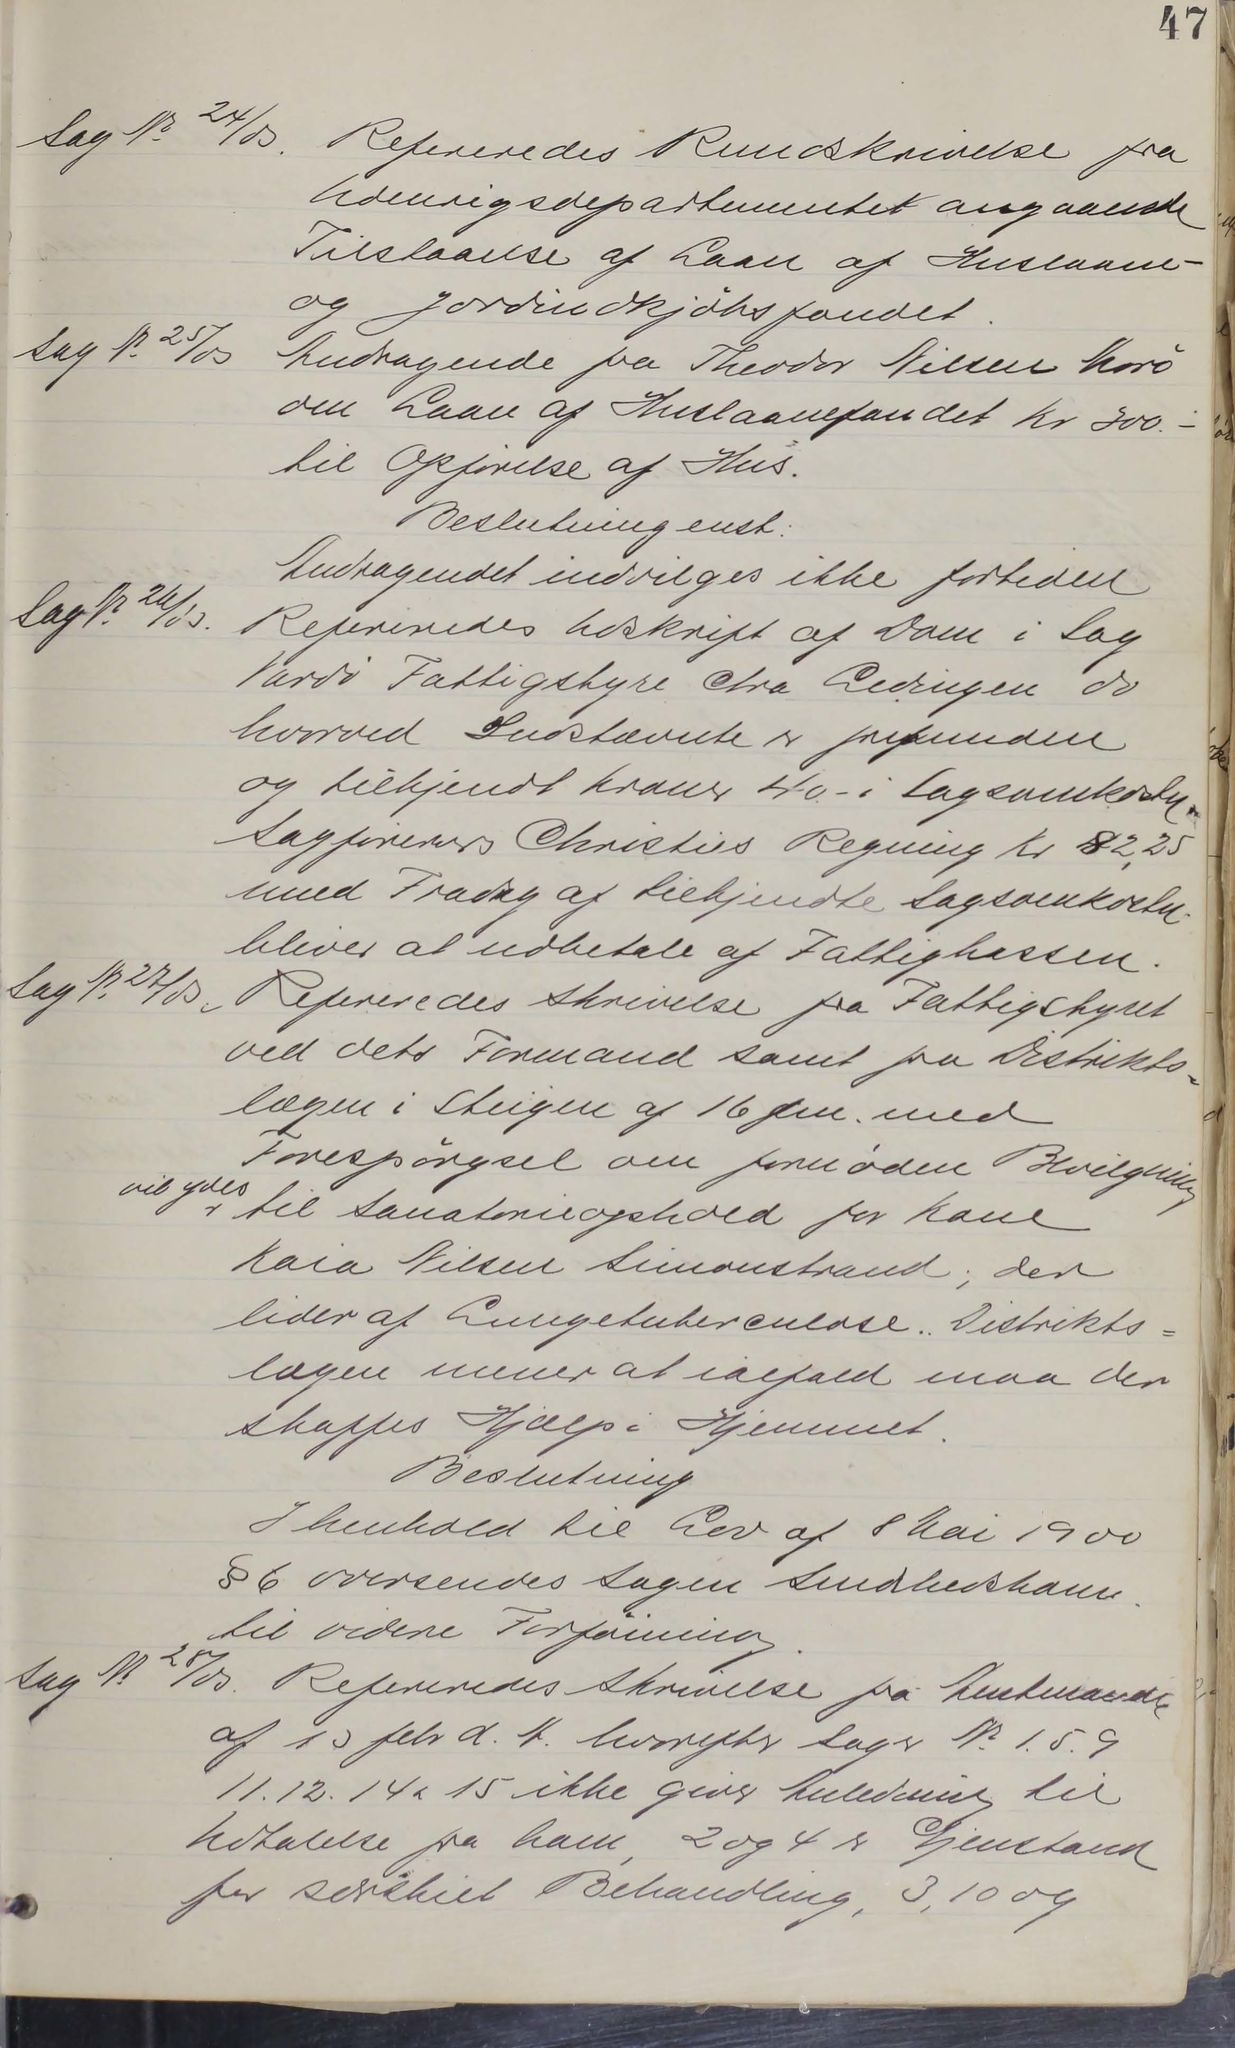 47
Sag No 24/03. Refereredes Rundskrivelse fra
Indenrigsdepartementet angaaende
Tilstaaelse af Laan af Huslaane-
og Jordindkjøbsfondet.
Sag No 25/03 Andragende fra Theodor Nilsen
om Laan af Huslaanefondet Kr 300.-
til Opførelse af Hus.
Beslutning enst:
Andragendet indvilges ikke fortiden
Sag No 26/03. Refereredes Udskrift af Dom i Sag
Vardø Fattigstyre ctra Ledingen do
hvorved Indstævnte er frifunden
og tilkjendt Kroner 40.- i Sagsomkostn.
Sagførerers Christies Regning Kr 82,25
med Fradrag af tilkjendte Sagsomkostn.
bliver at udbetale af Fattigkassen.
Sag No 27/03. Refereredes Skrivelse fra Fattigstyret
ved dets Formand samt fra Distrikts=
lægen i Steigen af 16 med
Forespørgsel om fornøden Bevilgning
vil ydes til Sanatorieophold for Kone
Kaia Nilsen Simonstrand; der
lider af Lungetuberculose. Distrikts=
lægen mener at ialfald maa der
skaffes Hjælp i Hjemmet.
Beslutning
I henhold til Lov af 8 Mai 1900
§ 6 oversendes Sagen Sundhedskom.
til videre Forføining.
Sag No 28/03. Refereredes Skrivelse fra Amtmanden
af 13 febr d. A. hvorefter Sager No 1. 5. 9
11. 12. 14 & 15 ikke giver Anledning til
Udtalelse fra ham, 2 og 4 er Gjenstand
for særskilt Behandling, 3, 10 og